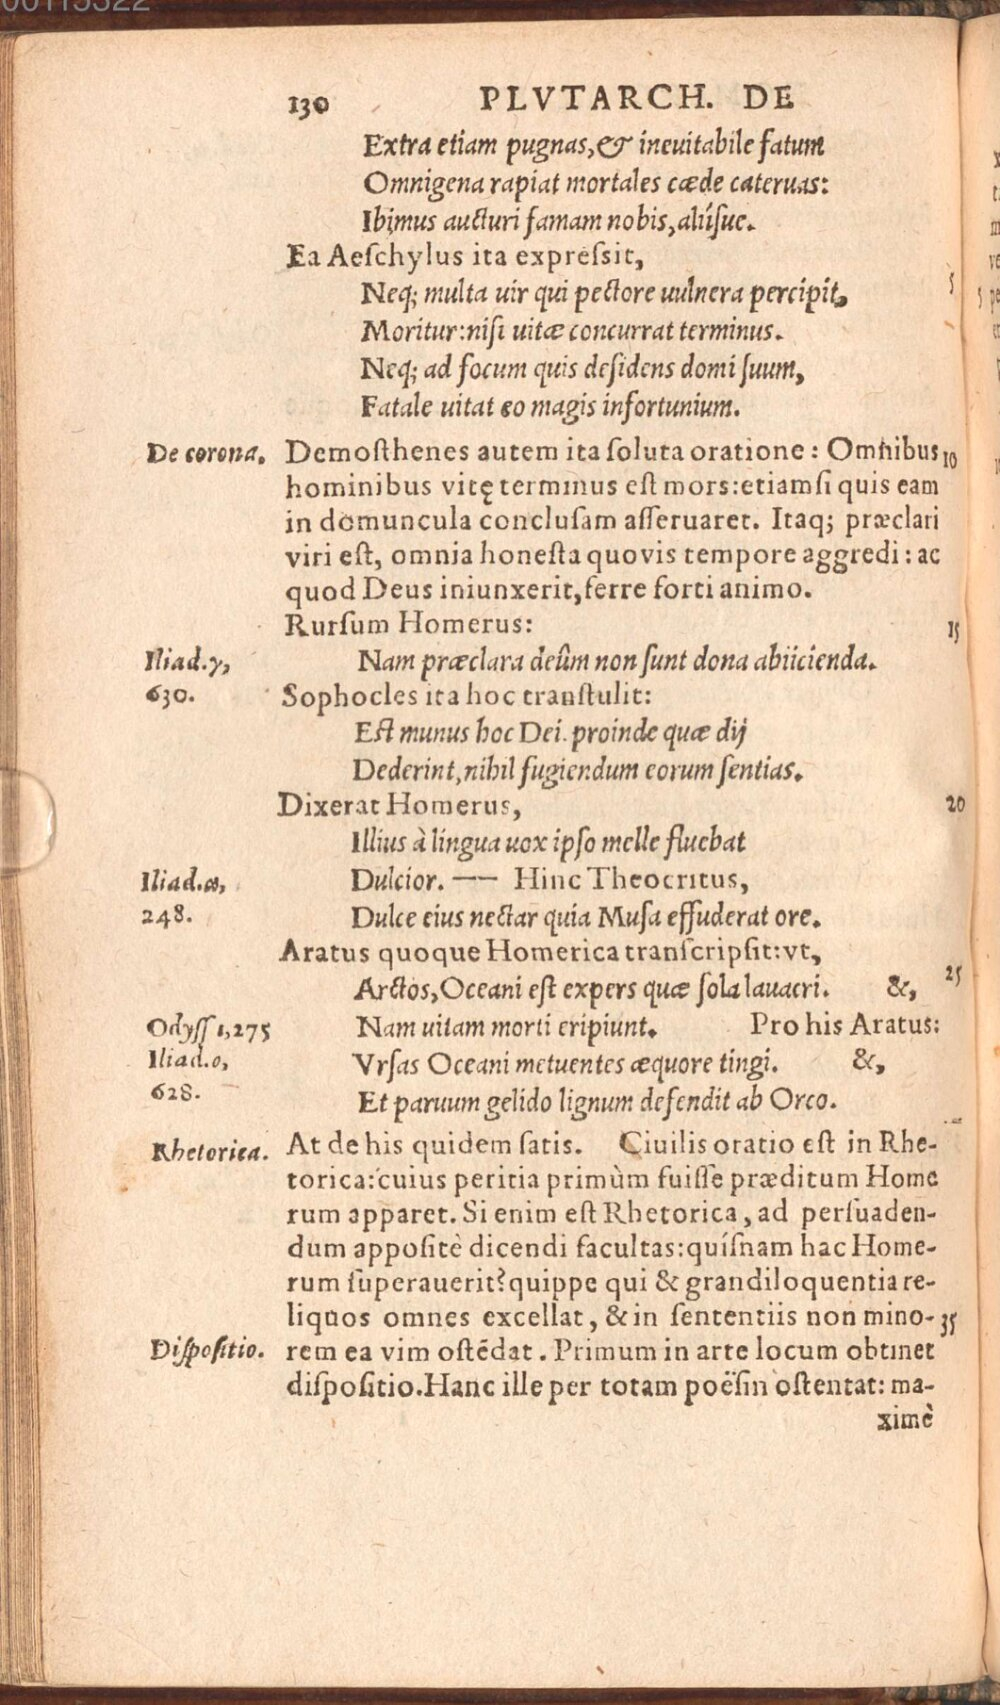 00115322
130 PLVTARCH. DE
Extra etiam pugnas, & ineuitabile fatum
Omnigena rapiat mortales cæde cateruas:
Ibimus aucturi famam nobis, aliísue.
Ea Aeſchylus ita expreſsit,
Neq; multa uir qui pectore uulnera percipit,
Moritur: niſi uitæ concurrat terminus.
Neq; ad focum quis deſidens domi ſuum,
Fatale uitat eo magis infortunium.
De corona. Demoſthenes autem ita ſoluta oratione: Omnibus 10
hominibus vitę terminus eſt mors: etiamſi quis eam
in domuncula concluſam aſſeruaret. Itaq; præclari
viri eſt, omnia honeſta quovis tempore aggredi: ac
quod Deus iniunxerit, ferre forti animo.
Rurſum Homerus: 15
Iliad.γ, Nam præclara deûm non ſunt dona abiicienda.
630. Sophocles ita hoc tranſtulit:
Eſt munus hoc Dei. proinde quæ dij
Dederint, nihil fugiendum eorum ſentias.
Dixerat Homerus, 20
Illius à lingua uox ipſo melle fluebat
Iliad.α, Dulcior. —— Hinc Theocritus,
248. Dulce eius nectar quia Muſa effuderat ore.
Aratus quoque Homerica tranſcripſit: vt,
Arctos, Oceani eſt expers quæ ſola lauacri. &, 25
Odyſſ 1,275 Nam uitam morti eripiunt. Pro his Aratus:
Iliad.ο, Vrſas Oceani metuentes æquore tingi. &,
628. Et paruum gelido lignum defendit ab Orco.
Rhetorica. At de his quidem ſatis. Ciuilis oratio eſt in Rhe-
torica: cuius peritia primùm fuiſſe præditum Home
rum apparet. Si enim eſt Rhetorica, ad perſuaden-
dum appoſitè dicendi facultas: quíſnam hac Home-
rum ſuperauerit? quippe qui & grandiloquentia re-
liquos omnes excellat, & in ſententiis non mino- 35
Diſpoſitio. rem ea vim oſtēdat. Primum in arte locum obtinet
diſpoſitio. Hanc ille per totam poëſin oſtentat: ma-
ximè